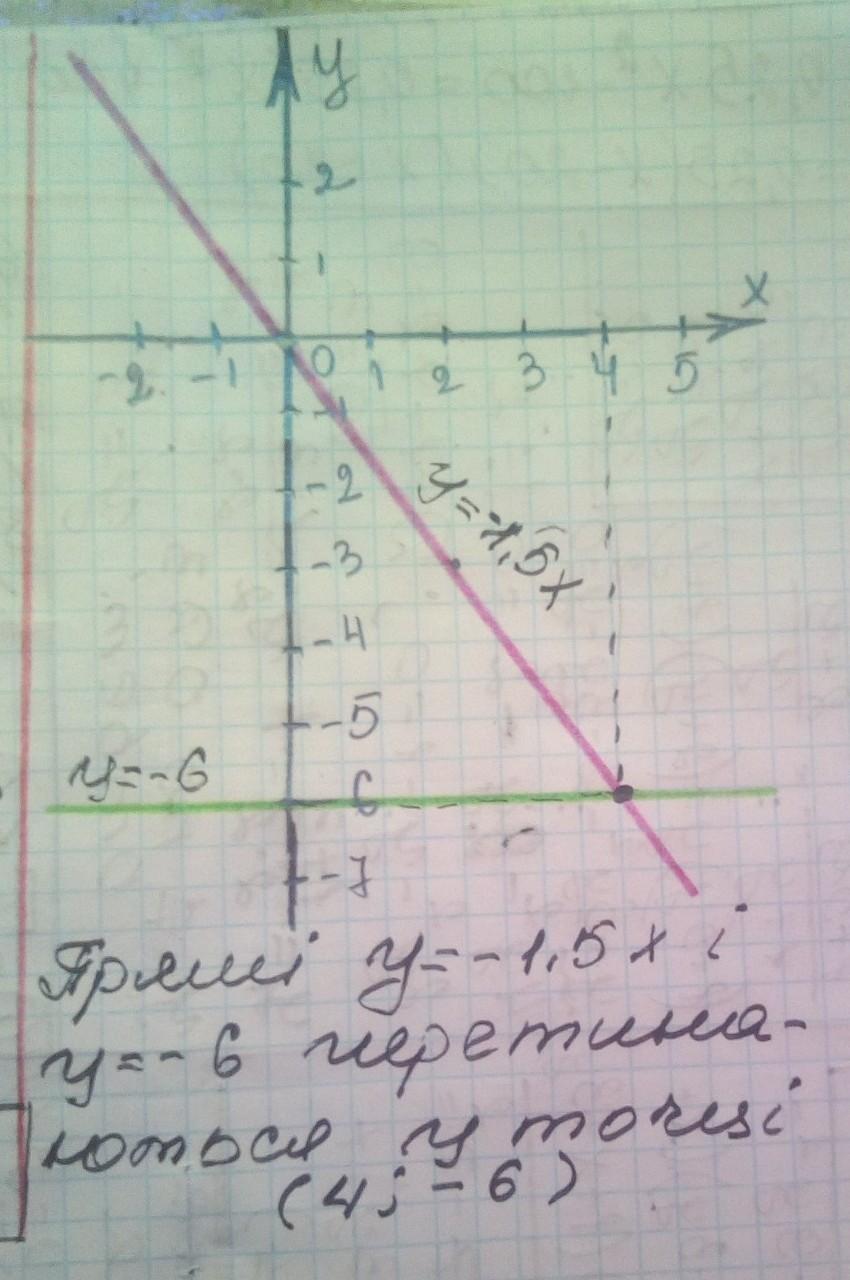 y
2
1
x
-2 -1 0 1 2 3 4 5
-1
-2
y=-1,5x
-3
-4
-5
y=-6
6
-7
Прямі y=-1,5x і
y=-6 перетина-
ються у точці
(4; -6)